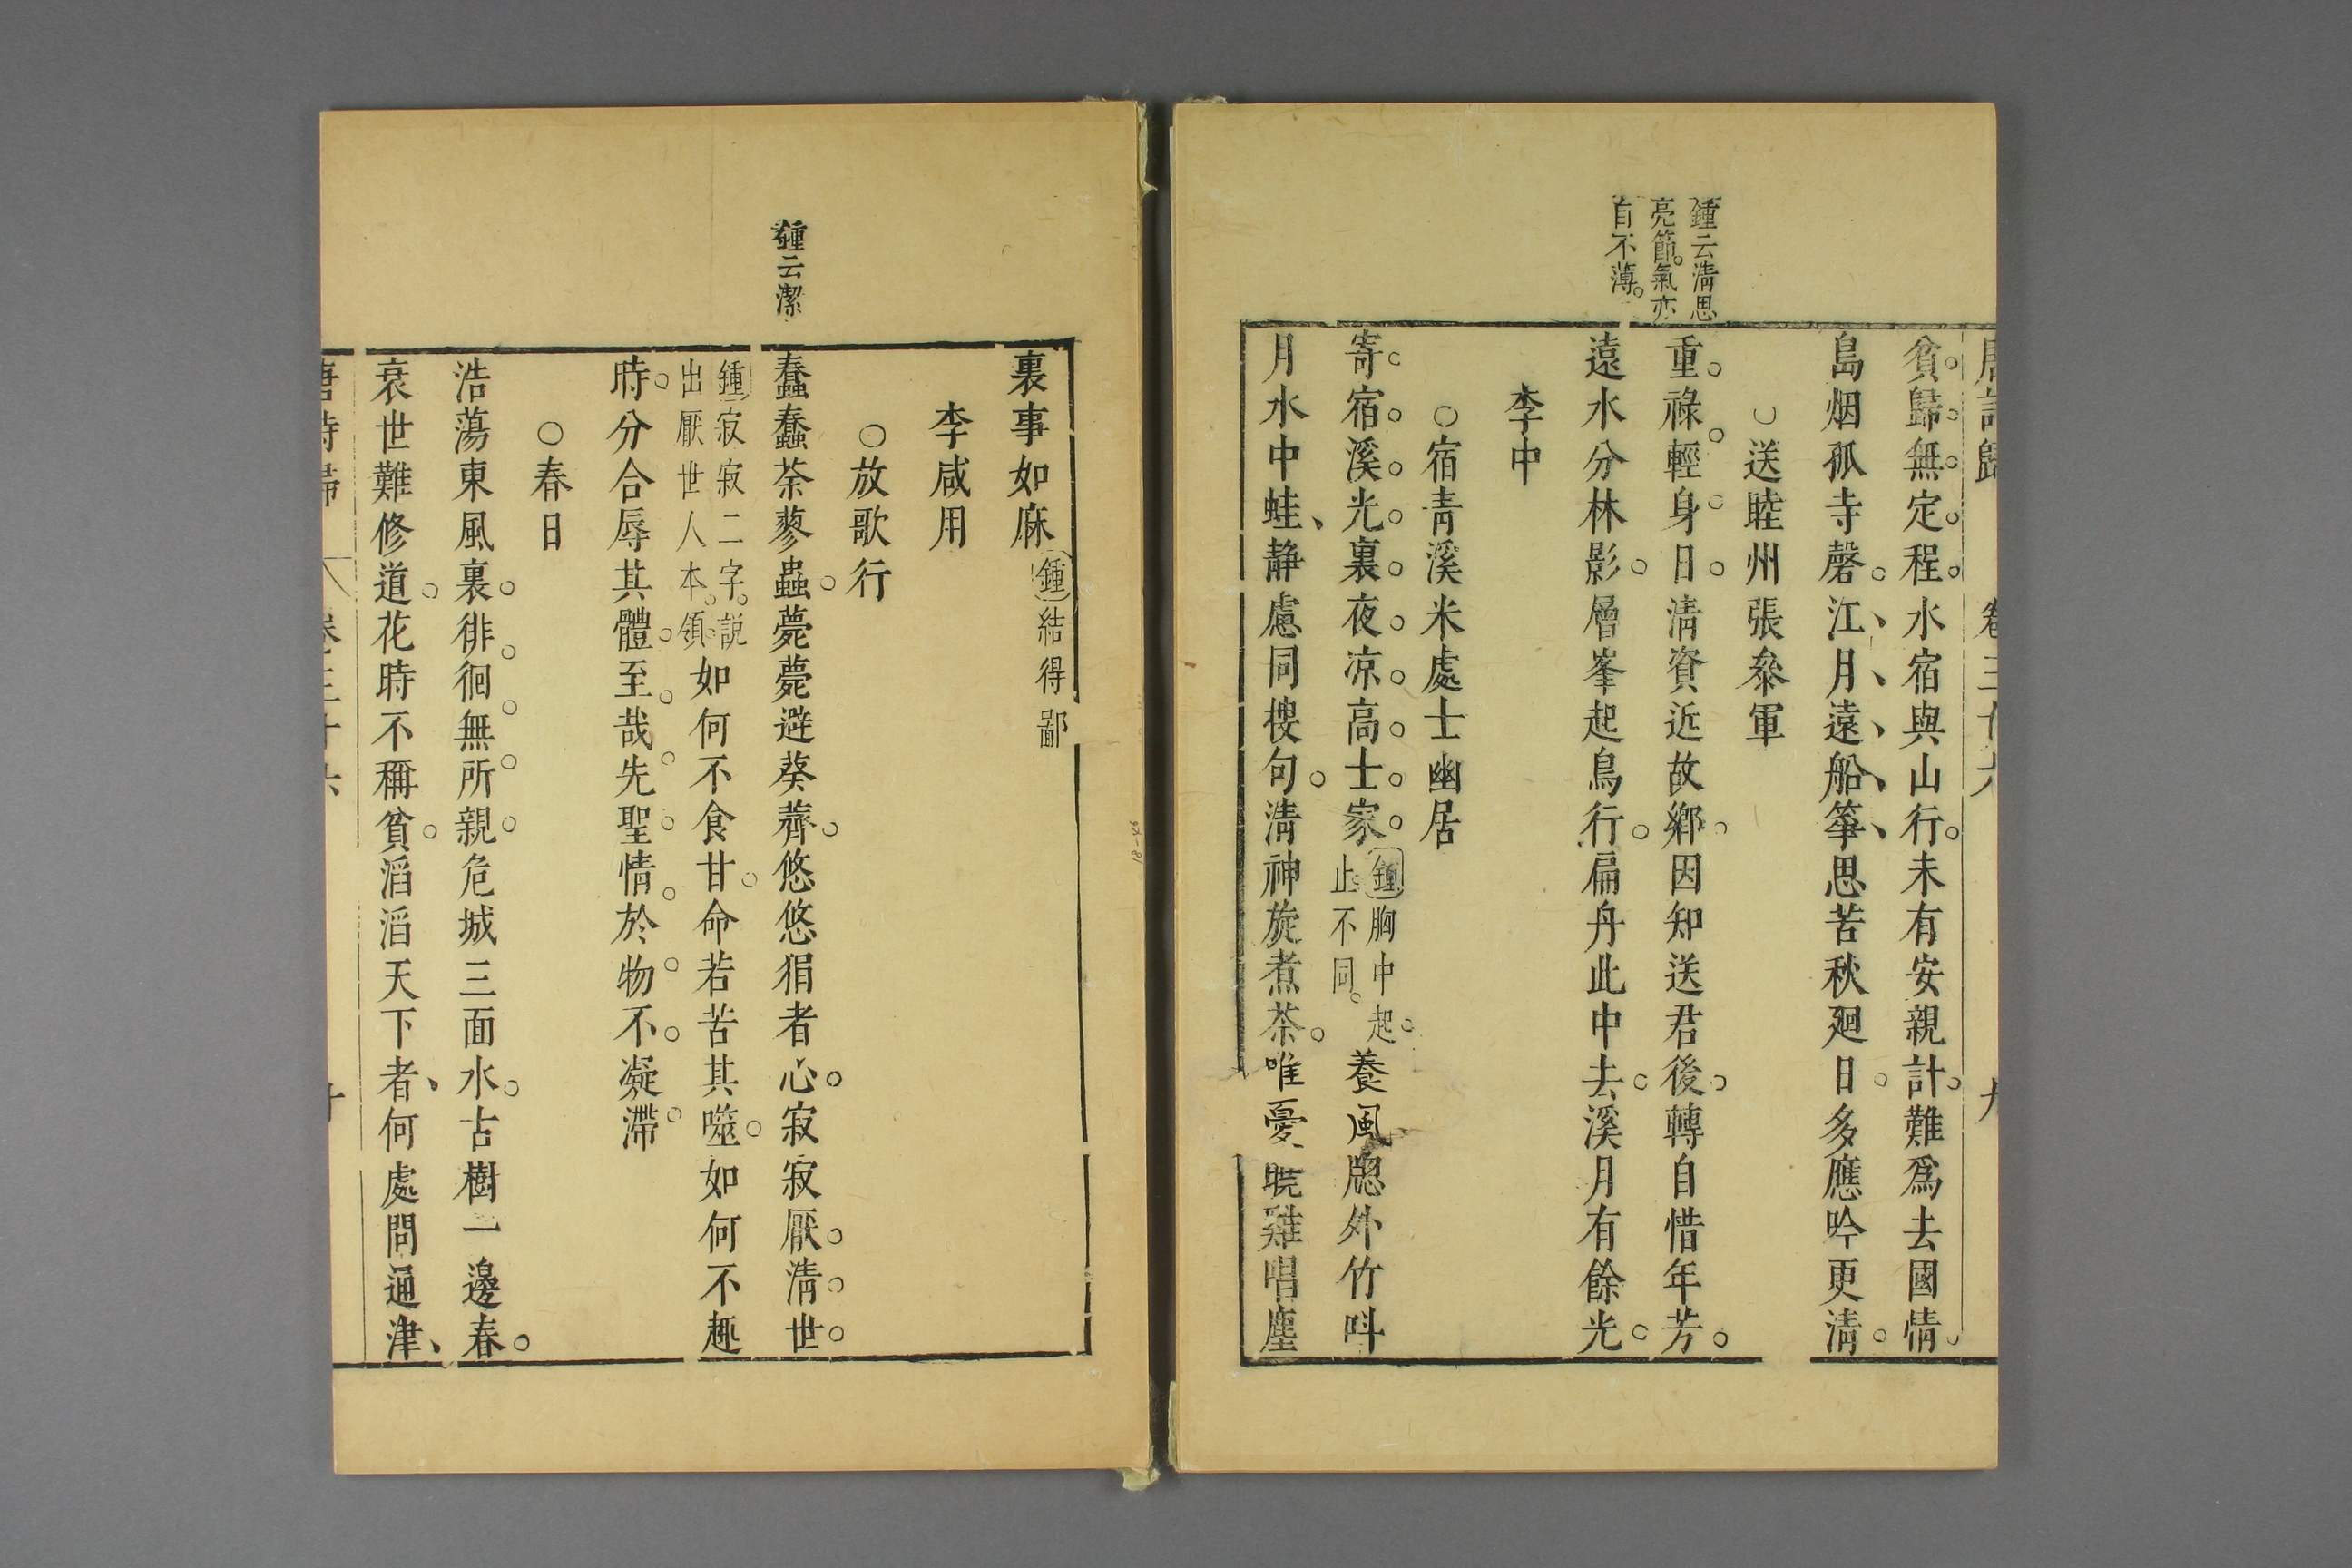 鍾云淸思
亮節氣亦
自不薄
貧歸無定程水宿與山行未有安親計難爲去國情
島烟孤寺磬江月遠船箏思苦秋廻日多應吟更淸
○送睦州張叅軍
重祿輕身日淸資近故鄉因知送君後轉自惜年芳
遠水分林影層峯起鳥行扁舟此中去溪月有餘光
李中
○宿靑溪米處士幽居
寄宿溪光裏夜凉高士家鍾胸中起止不同養風牕外竹呌
月水中蛙静慮同搜句淸神旋煮茶唯憂曉雞唱塵
鍾云潔
裏事如麻鍾結得鄙
李咸用
○放歌行
蠢蠢荼蓼蟲薨薨避葵薺悠悠狷者心寂寂厭淸世
鍾寂寂二字説出厭世人本領如何不食甘命若苦其噬如何不趣
時分合辱其體至哉先聖情於物不凝滯
○春日
浩蕩東風裏徘徊無所親危城三面水古樹一邊春
衰世難修道花時不稱貧滔滔天下者何處問通津